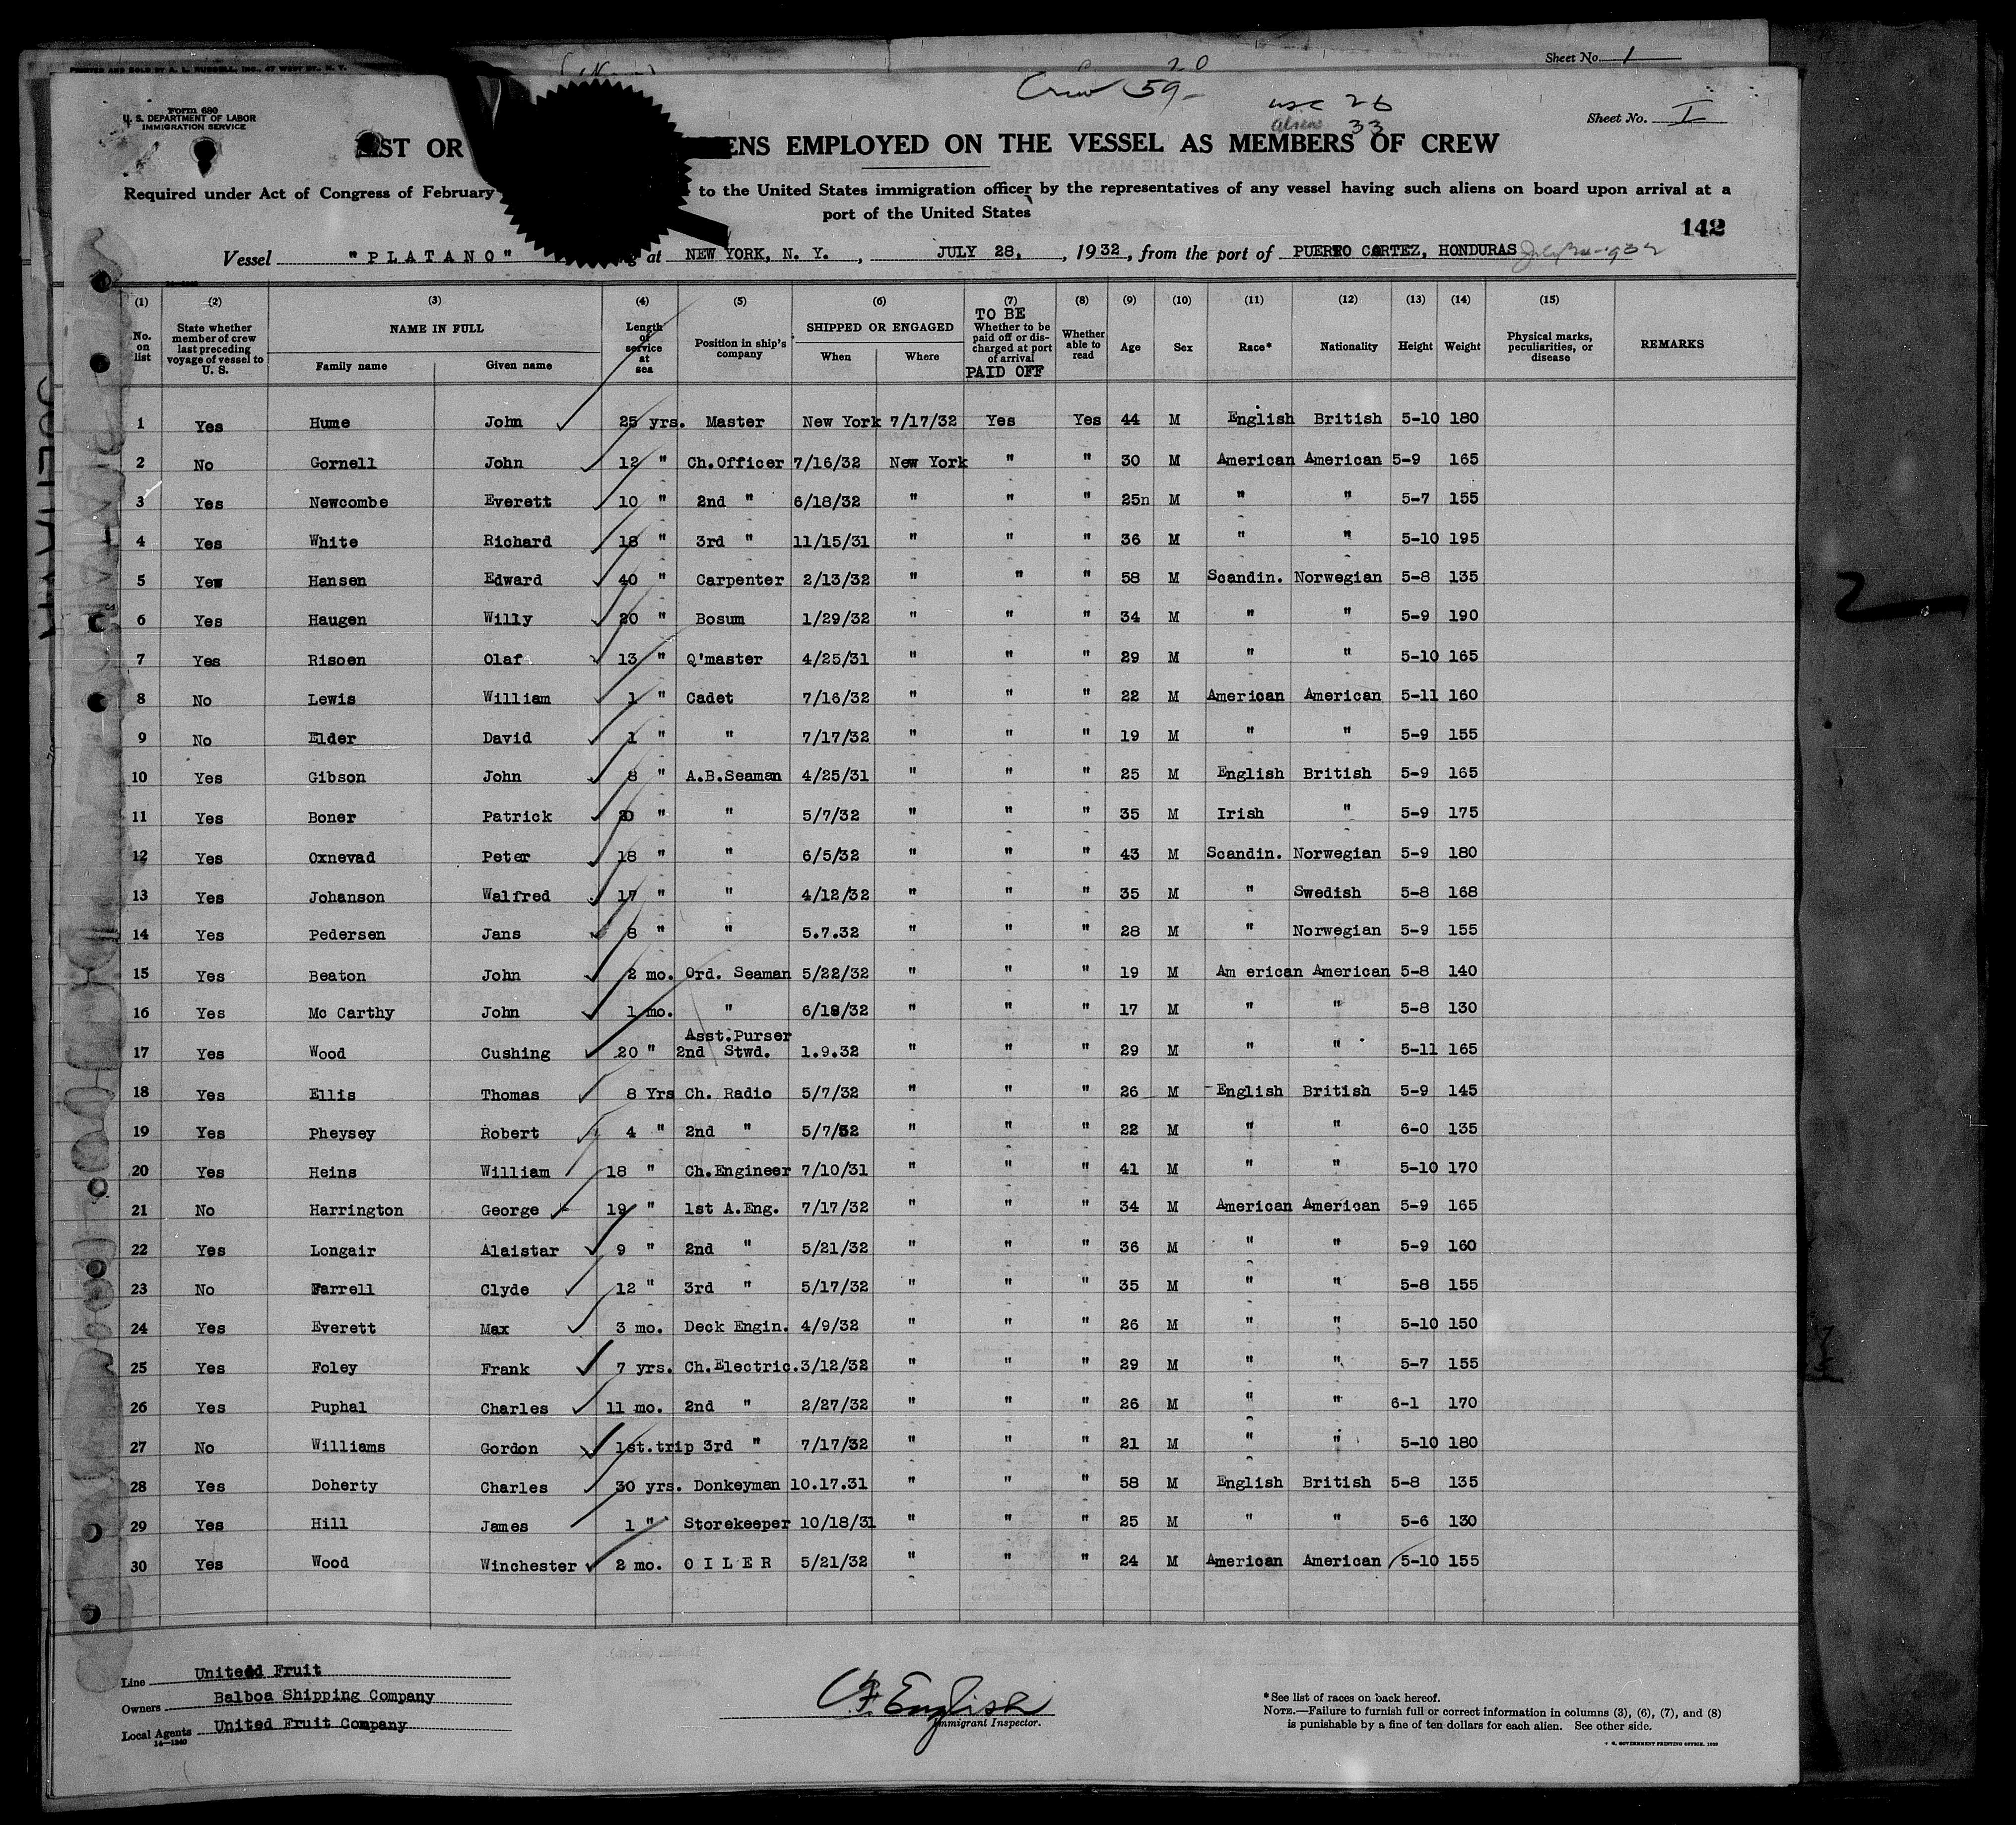 PRINTED AND SOLD BY A. L. RUSSELL, INC., 47 WEST ST., N. Y.
Sheet No. 1
Crew 59-
20
usc 26
aliens 33
Form 680
U. S. DEPARTMENT OF LABOR
IMMIGRATION SERVICE
Sheet No. I
ST OR ENS EMPLOYED ON THE VESSEL AS MEMBERS OF CREW
Required under Act of Congress of February to the United States immigration officer by the representatives of any vessel having such aliens on board upon arrival at a
port of the United States
142
Vessel "PLATANO" g at NEW YORK, N. Y. , JULY 28, , 1932, from the port of PUERTO CORTEZ, HONDURAS
(1) (2) (3) (4) (5) (6) (7) (8) (9) (10) (11) (12) (13) (14) (15)
No. on list | State whether member of crew last preceding voyage of vessel to U. S. | NAME IN FULL | Family name | Given name | Length of service at sea | Position in ship's company | SHIPPED OR ENGAGED | When | Where | TO BE Whether to be paid off or discharged at port of arrival PAID OFF | Whether able to read | Age | Sex | Race* | Nationality | Height | Weight | Physical marks, peculiarities, or disease | REMARKS
1 Yes Hume John 25 yrs. Master New York 7/17/32 Yes Yes 44 M English British 5-10 180
2 No Gornell John 12 " Ch.Officer 7/16/32 New York " " 30 M American American 5-9 165
3 Yes Newcombe Everett 10 " 2nd " 6/18/32 " " " 25n M " " 5-7 155
4 Yes White Richard 18 " 3rd " 11/15/31 " " " 36 M " " 5-10 195
5 Yew Hansen Edward 40 " Carpenter 2/13/32 " " " 58 M Scandin. Norwegian 5-8 135
6 Yes Haugen Willy 20 " Bosum 1/29/32 " " " 34 M " " 5-9 190
7 Yes Risoen Olaf 13 " Q'master 4/25/31 " " " 29 M " " 5-10 165
8 No Lewis William 1 " Cadet 7/16/32 " " " 22 M American American 5-11 160
9 No Elder David 1 " " 7/17/32 " " " 19 M " " 5-9 155
10 Yes Gibson John 8 " A.B.Seaman 4/25/31 " " " 25 M English British 5-9 165
11 Yes Boner Patrick 20 " " 5/7/32 " " " 35 M Irish " 5-9 175
12 Yes Oxnevad Peter 18 " " 6/5/32 " " " 43 M Scandin. Norwegian 5-9 180
13 Yes Johanson Walfred 17 " " 4/12/32 " " " 35 M " Swedish 5-8 168
14 Yes Pedersen Jans 8 " " 5.7.32 " " " 28 M " Norwegian 5-9 155
15 Yes Beaton John 2 mo. Ord. Seaman 5/22/32 " " " 19 M Am erican American 5-8 140
16 Yes Mc Carthy John 1 mo. " 6/18/32 " " " 17 M " " 5-8 130
17 Yes Wood Cushing 20 " Asst.Purser 2nd Stwd. 1.9.32 " " " 29 M " " 5-11 165
18 Yes Ellis Thomas 8 Yrs Ch. Radio 5/7/32 " " " 26 M English British 5-9 145
19 Yes Pheysey Robert 4 " 2nd " 5/7/32 " " " 22 M " " 6-0 135
20 Yes Heins William 18 " Ch.Engineer 7/10/31 " " " 41 M " " 5-10 170
21 No Harrington George 19 " 1st A.Eng. 7/17/32 " " " 34 M American American 5-9 165
22 Yes Longair Alaistar 9 " 2nd " 5/21/32 " " " 36 M " " 5-9 160
23 No Farrell Clyde 12 " 3rd " 5/17/32 " " " 35 M " " 5-8 155
24 Yes Everett Max 3 mo. Deck Engin. 4/9/32 " " " 26 M " " 5-10 150
25 Yes Foley Frank 7 yrs. Ch.Electric. 3/12/32 " " " 29 M " " 5-7 155
26 Yes Puphal Charles 11 mo. 2nd " 2/27/32 " " " 26 M " " 6-1 170
27 No Williams Gordon 1st.trip 3rd " 7/17/32 " " " 21 M " " 5-10 180
28 Yes Doherty Charles 30 yrs. Donkeyman 10.17.31 " " " 58 M English British 5-8 135
29 Yes Hill James 1 " Storekeeper 10/18/31 " " " 25 M " " 5-6 130
30 Yes Wood Winchester 2 mo. O I L E R 5/21/32 " " " 24 M American American 5-10 155
Line United Fruit
Owners Balboa Shipping Company
Local Agents United Fruit Company
14-1240
English
Immigrant Inspector.
*See list of races on back hereof.
NOTE.—Failure to furnish full or correct information in columns (3), (6), (7), and (8)
is punishable by a fine of ten dollars for each alien. See other side.
GOVERNMENT PRINTING OFFICE.
2